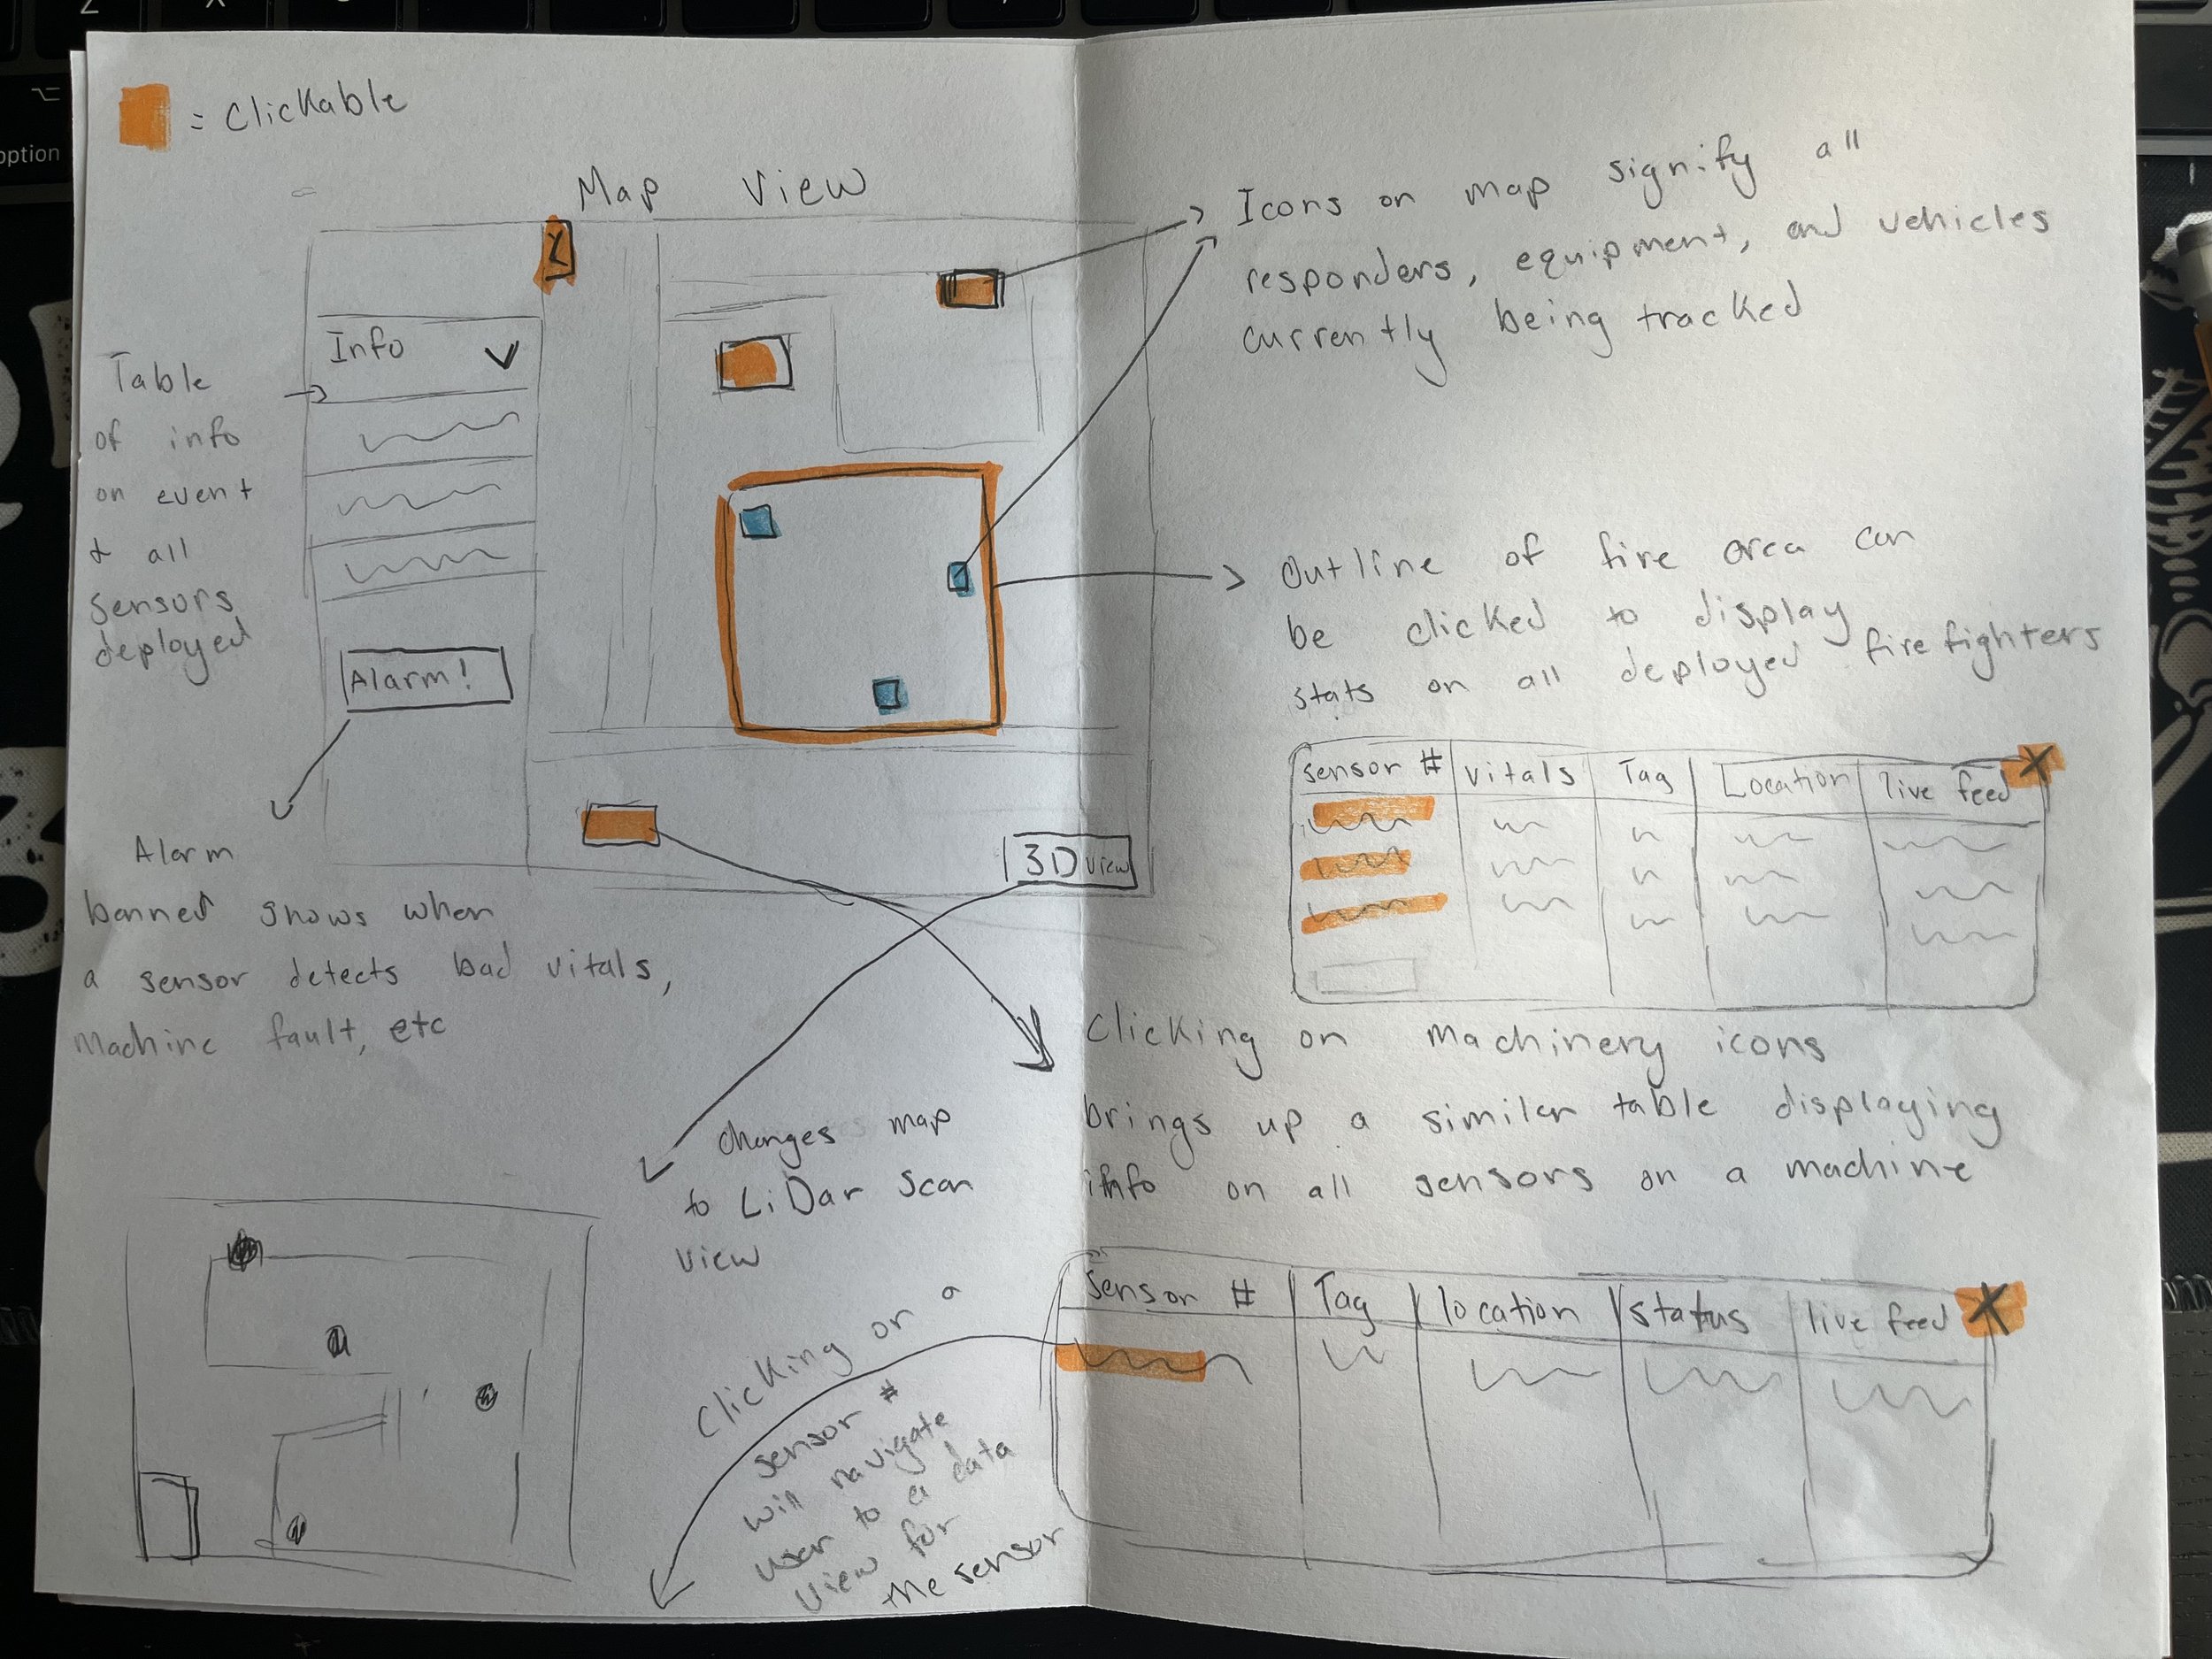 = Clickable
Map View
<
Info
Table
of info
on event
& all
sensors
deployed
Alarm!
Alarm
banned shows when
a sensor detects bad vitals,
machine fault, etc
3D view
changes map
to LiDar scan
view
Icons on map signify all
responders, equipment, and vehicles
currently being tracked
Outline of fire area can
be clicked to display
stats on all deployed firefighters
Sensor # Vitals Tag Location live feed X
Clicking on machinery icons
brings up a similar table displaying
info on all sensors on a machine
Sensor # Tag location status live feed X
Clicking on a
sensor #
will navigate
user to a data
view for
the sensor
option
Z
X